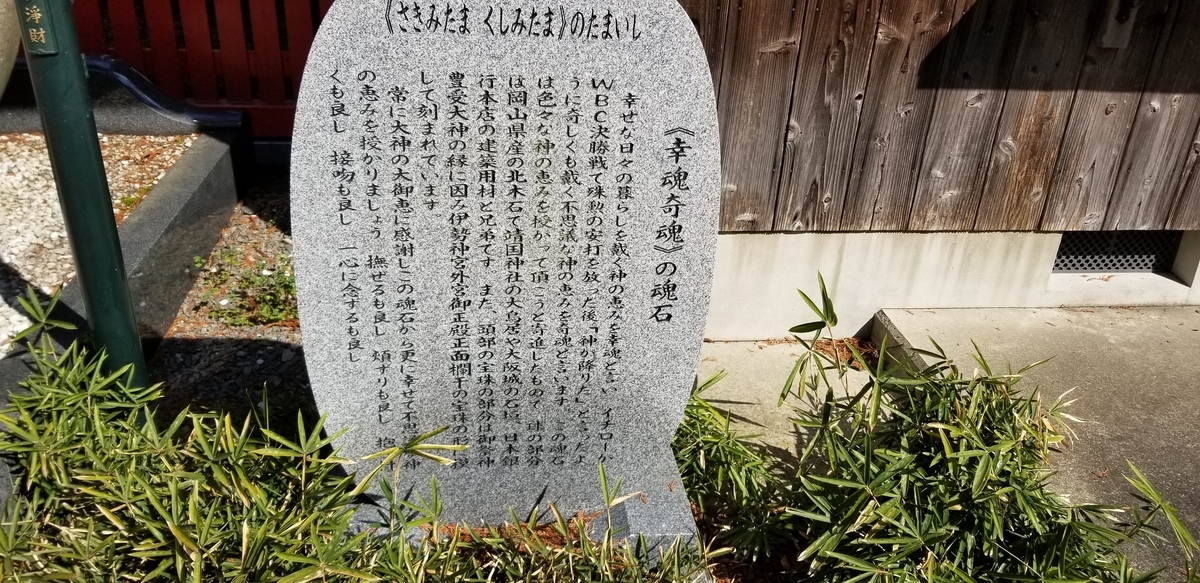 浄財
《さきみたま くしみたま》のたまいし
《幸魂奇魂》の魂石
幸せな日々の暮らしを戴く神の恵みを幸魂と言い イチローが
WBC決勝戦で殊勲の安打を放った後「神が降りた」と言ったよ
うに奇しくも戴く不思議な神の恵みを奇魂と言います この魂石
は色々な神の恵みを授かって頂こうと寄進したもので 球の部分
は岡山県産の北木石で靖国神社の大鳥居や大阪城の石垣、日本銀
行本店の建築用材と兄弟です また、頭部の宝珠の部分は御祭神
豊受大神の縁に因み伊勢神宮外宮御正殿正面欄干の宝珠の形を
して刻まれています
常に大神の大御恵に感謝しこの魂石から更に幸せで不思議な神
の恵みを授かりましょう 撫せるも良し 頬ずりも良し 抱
くも良し 接吻も良し 一心に念するも良し